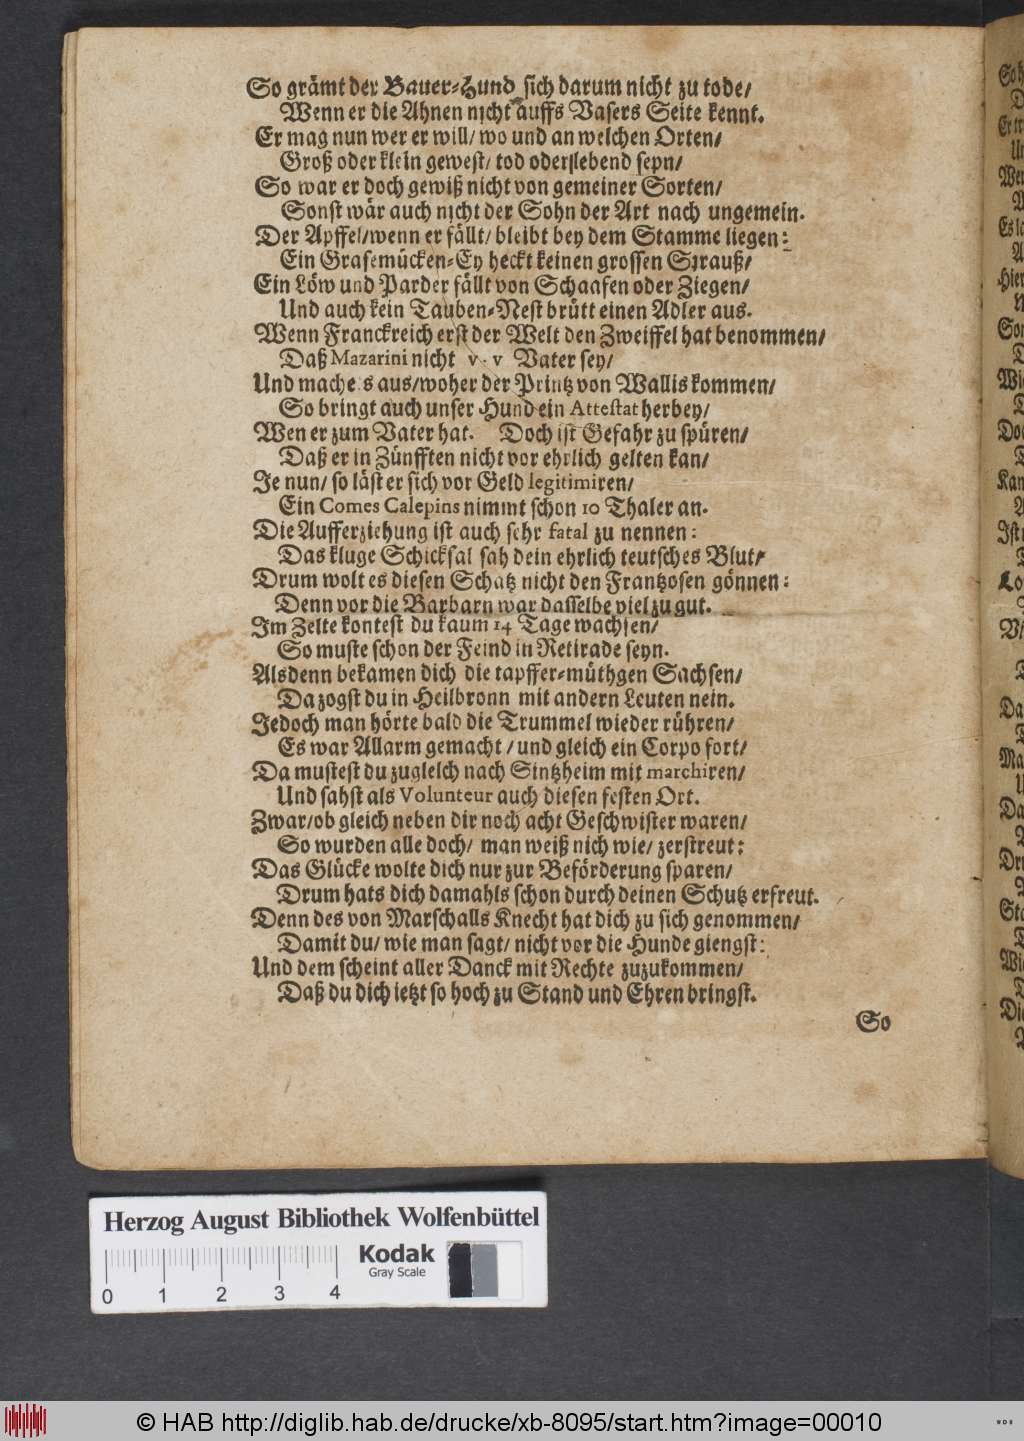 So grämt der Bauer-Hund sich darum nicht zu tode/
Wenn er die Ahnen nicht auffs Vasers Seite kennt.
Er mag nun wer er will/ wo und an welchen Orten/
Groß oder klein gewest/ tod oder lebend seyn/
So war er doch gewiß nicht von gemeiner Sorten/
Sonst wär auch nicht der Sohn der Art nach ungemein.
Der Apffel/ wenn er fällt/ bleibt bey dem Stamme liegen:
Ein Grasemücken-Ey heckt keinen grossen Strauß/
Ein Löw und Parder fällt von Schaafen oder Ziegen/
Und auch kein Tauben-Nest brütt einen Adler aus.
Wenn Franckreich erst der Welt den Zweiffel hat benommen/
Daß Mazarini nicht v. v Vater sey/
Und mache s aus/ woher der Printz von Wallis kommen/
So bringt auch unser Hund ein Attestat herbey/
Wen er zum Vater hat. Doch ist Gefahr zu spüren/
Daß er in Zünfften nicht vor ehrlich gelten kan/
Je nun/ so läst er sich vor Geld legitimiren/
Ein Comes Calepins nimmt schon 10 Thaler an.
Die Aufferziehung ist auch sehr fatal zu nennen:
Das kluge Schicksal sah dein ehrlich teutsches Blut/
Drum wolt es diesen Schatz nicht den Frantzosen gönnen:
Denn vor die Barbarn war dasselbe viel zu gut.
Im Zelte kontest du kaum 14 Tage wachsen/
So muste schon der Feind in Retirade seyn.
Alsdenn bekamen dich die tapffer-müthgen Sachsen/
Da zogst du in Heilbronn mit andern Leuten nein.
Jedoch man hörte bald die Trummel wieder rühren/
Es war Allarm gemacht/ und gleich ein Corpo fort/
Da mustest du zugleich nach Sintzheim mit marchiren/
Und sahst als Volunteur auch diesen festen Ort.
Zwar/ ob gleich neben dir noch acht Geschwister waren/
So wurden alle doch/ man weiß nich wie/ zerstreut:
Das Glücke wolte dich nur zur Beförderung sparen/
Drum hats dich damahls schon durch deinen Schutz erfreut.
Denn des von Marschalls Knecht hat dich zu sich genommen/
Damit du/ wie man sagt/ nicht vor die Hunde giengst:
Und dem scheint aller Danck mit Rechte zuzukommen/
Daß du dich ietzt so hoch zu Stand und Ehren bringst.
So
Herzog August Bibliothek Wolfenbüttel
Kodak
Gray Scale
0 1 2 3 4
© HAB http://diglib.hab.de/drucke/xb-8095/start.htm?image=00010